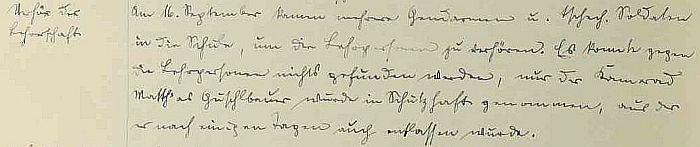 Verhör der
Lehrerschaft
Am 16. September kamen mehrere Gendarmen u. tschech. Soldaten
in die Schule, um die Lehrpersonen zu verhören. Es konnte gegen
die Lehrpersonen nichts gefunden werden, nur der Kamerad
Matthias Guschlbauer wurde in Schutzhaft genommen, aus der
er nach einigen Tagen auch entlassen wurde.